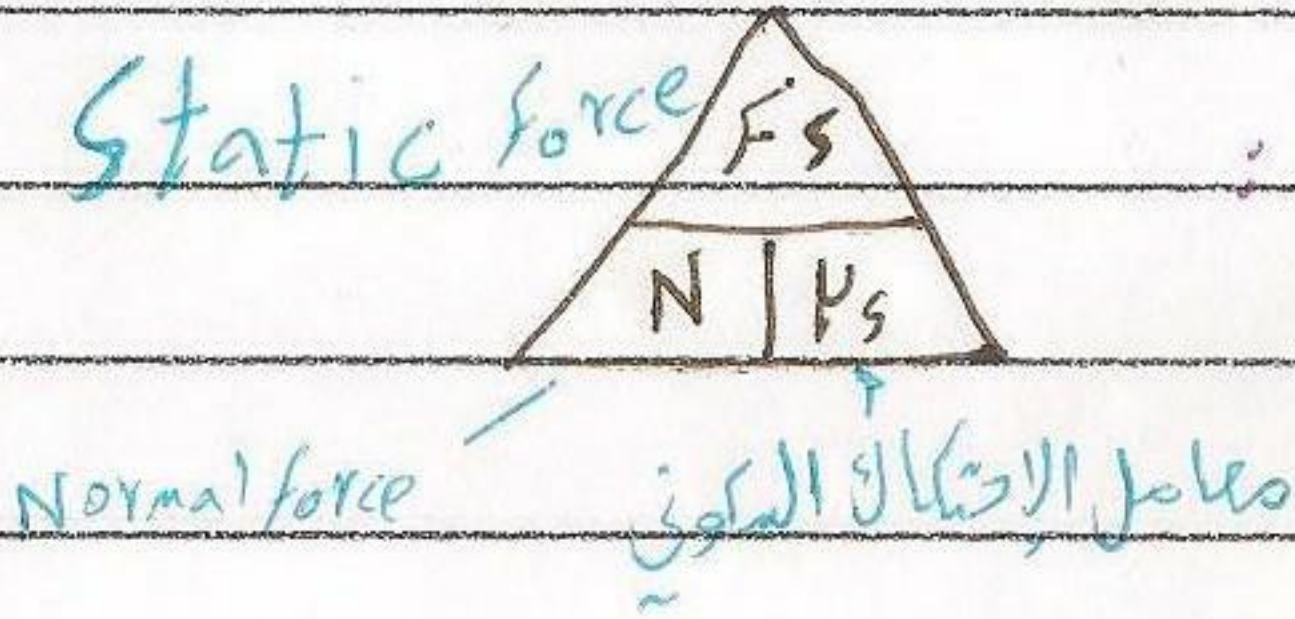 Static force
Fs
N | μs
Normal force
معامل الإحتكاك السكوني